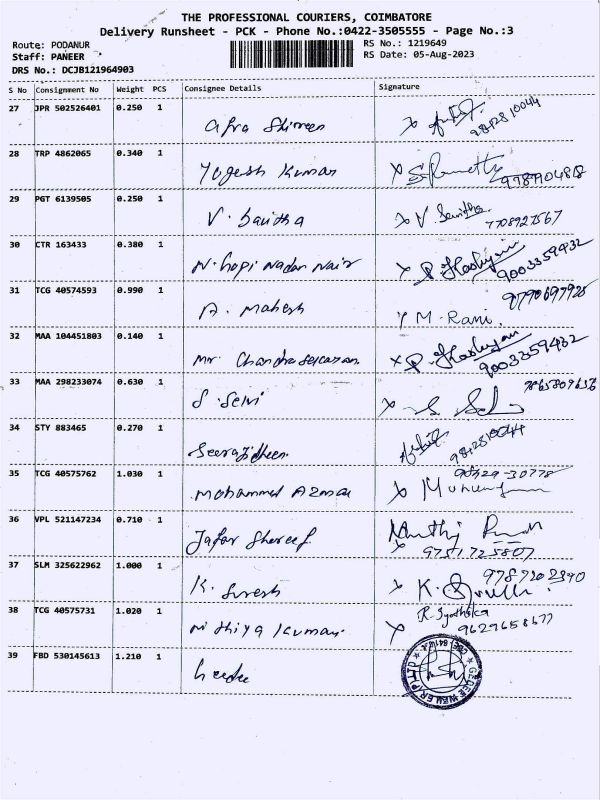 THE PROFESSIONAL COURIERS, COIMBATORE
Delivery Runsheet - PCK - Phone No.:0422-3505555 - Page No.:3
Route: PODANUR RS No.: 1219649
Staff: PANEER RS Date: 05-Aug-2023
DRS No.: DCJB121964903
S No Consignment No Weight PCS Consignee Details Signature
27 JPR 502526401 0.250 1
Afra Shirreen 9842810044
28 TRP 4862065 0.340 1
Yogesh Kumar
29 PGT 6139505 0.250 1
V. Savitha X V. Savitha 7708927567
30 CTR 163433 0.380 1
N. Gopi Nadar Nair X 9003359432
31 TCG 40574593 0.990 1 9790697925
A. Mahesh M. Rani.
32 MAA 104451803 0.140 1
Mr Chandrasekaran. X 9003359432
33 MAA 298233074 0.630 1
S. Selvi X
34 STY 883465 0.270 1
9842810044
35 TCG 40575762 1.030 1 98429-30778
Mohammed Azmal X
36 VPL 521147234 0.710 1
Jafar Shereef X 9751725807
37 SLM 325622962 1.000 1 9787202390
K. Suresh X K.
38 TCG 40575731 1.020 1
Nithiya Kumar. X 9629658677
39 FBD 530145613 1.210 1